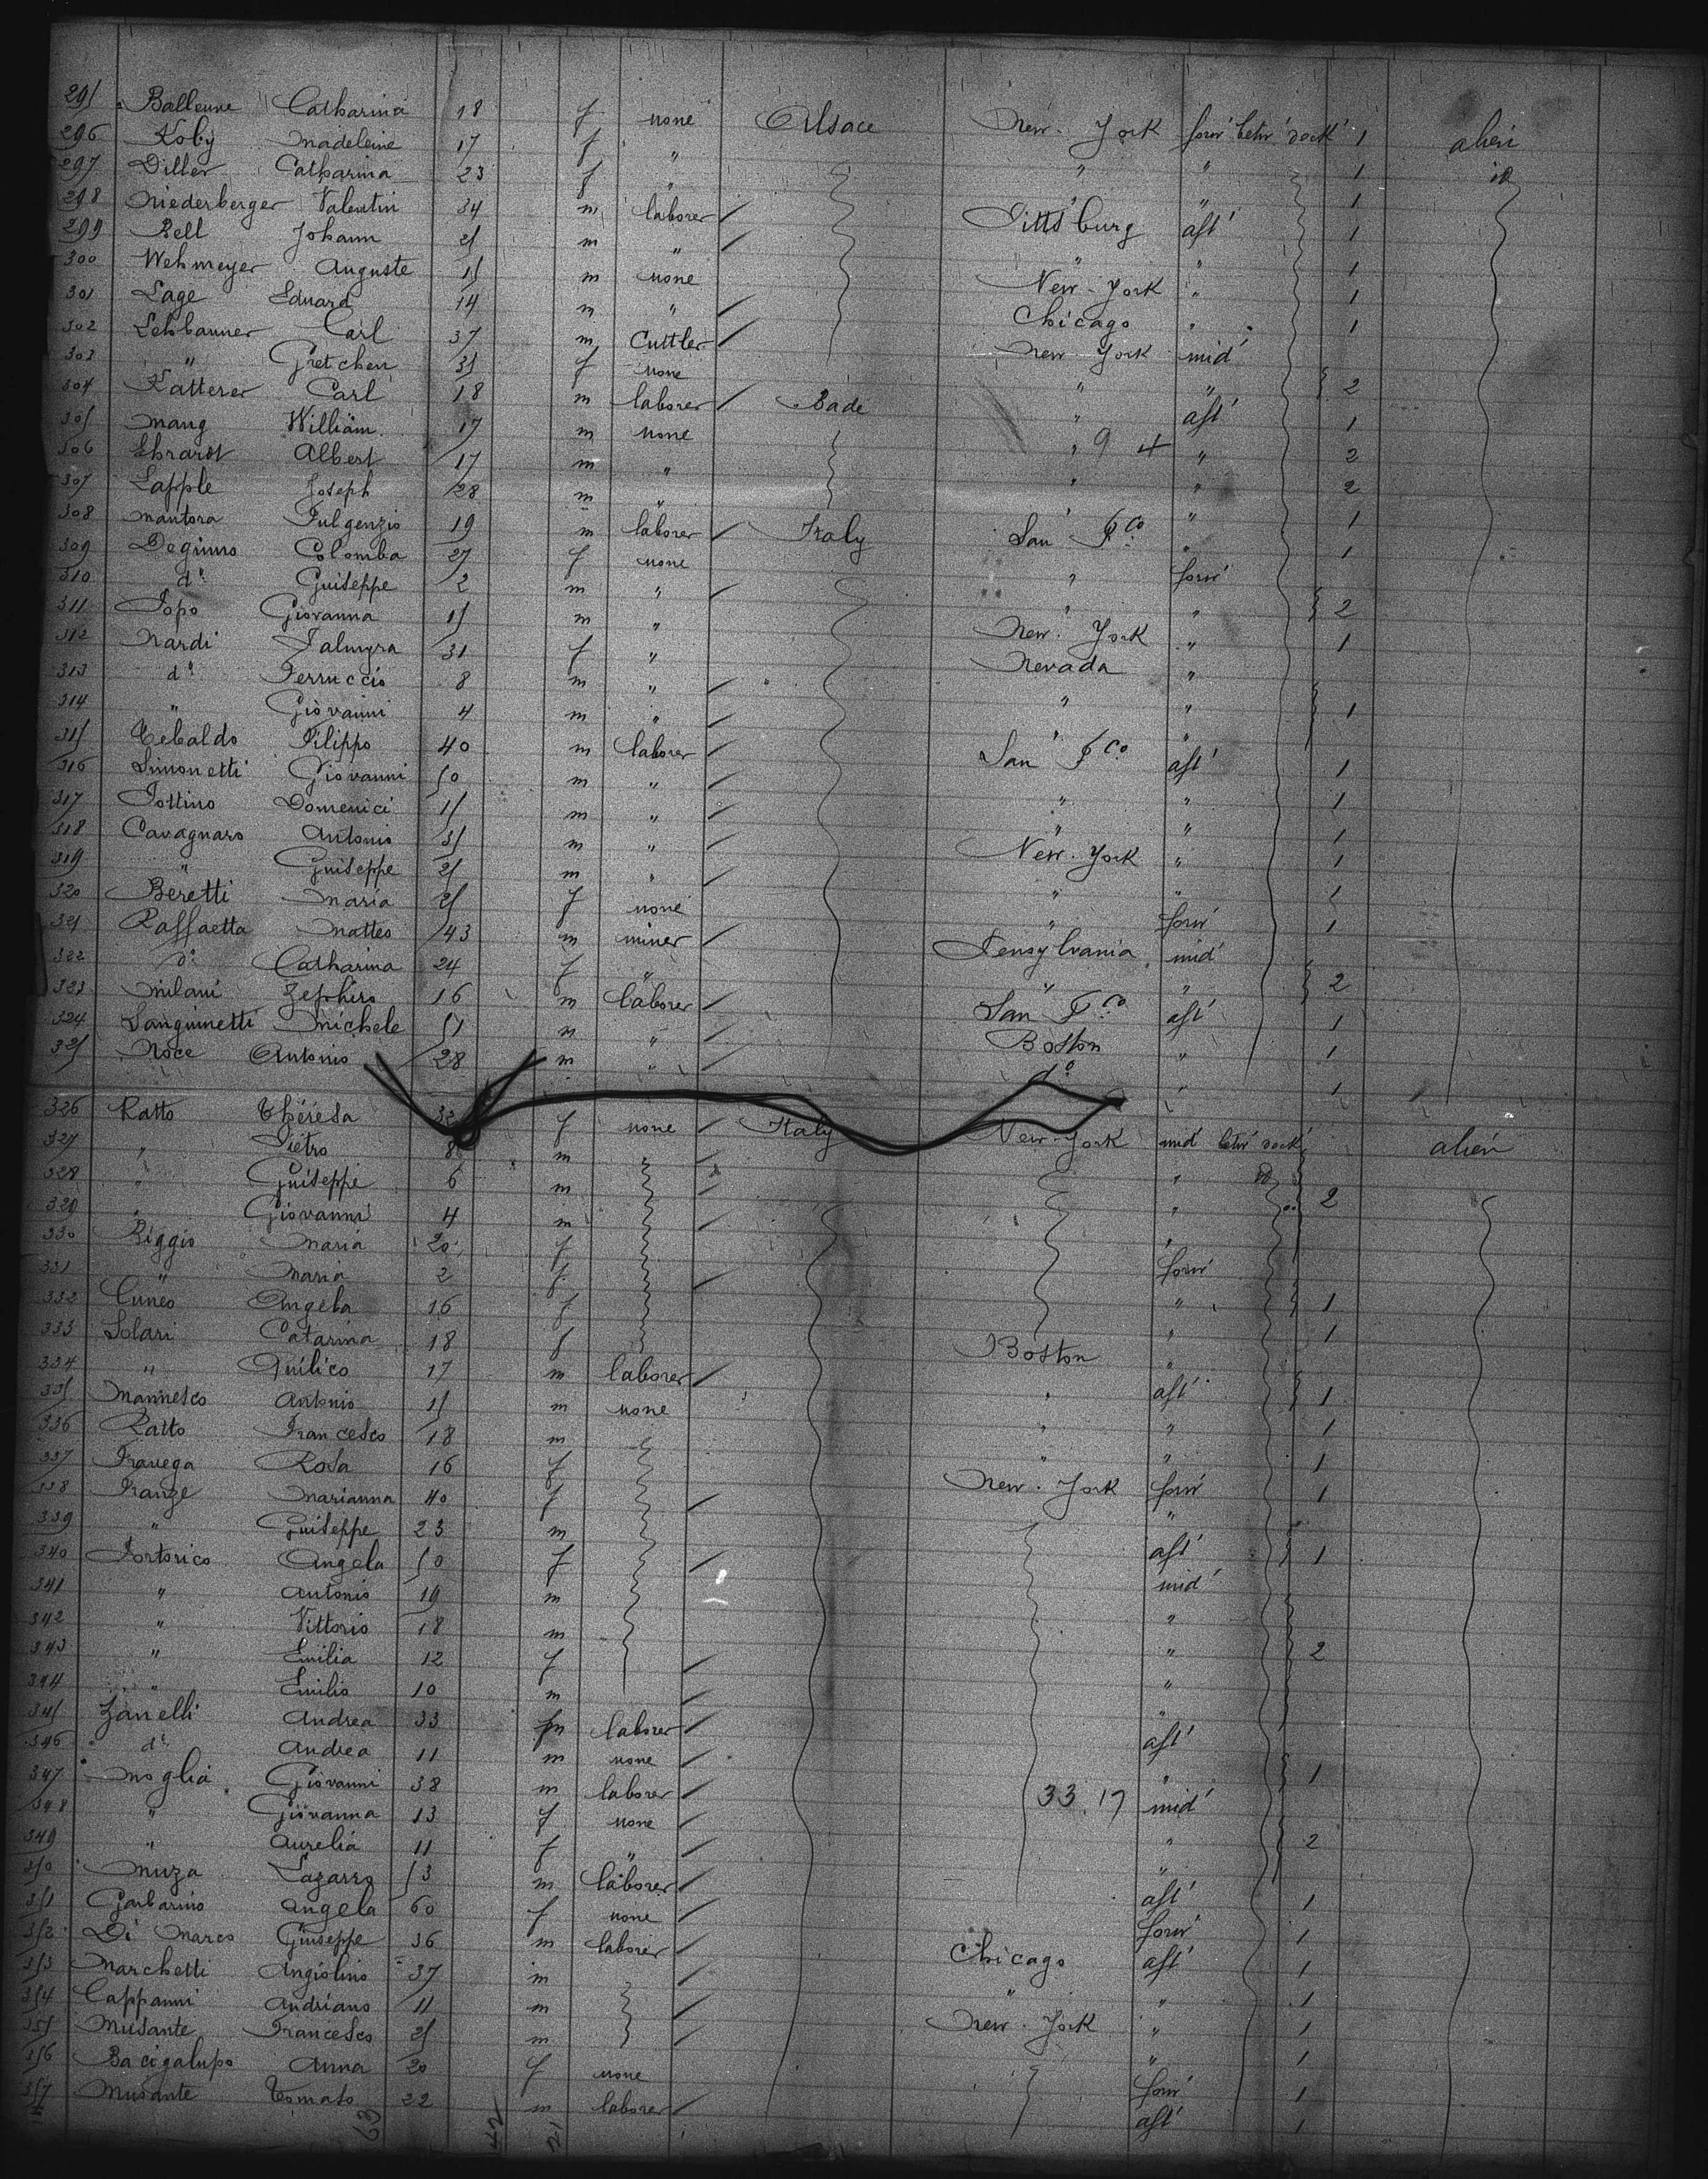 295 Balleune Catharina 18 f none Alsace New-York forw' betw' deck' 1 alien
296 Koby Madeleine 17 f " " " 1 id
297 Diller Catharina 23 f " " 1
298 Niederberger Valentin 34 m laborer Pitts'burg aft' 1
299 Bell Johann 25 m " " " 1
300 Wehmeyer Auguste 15 m none New-York " 1
301 Lage Eduard 14 m " Chicago " 1
302 Lehbanner Carl 37 m Cuttler New York mid'
303 " Gretchen 35 f none " " 2
304 Katterer Carl 18 m laborer Bade " aft' 1
305 Mang William 17 m none " 9 4 " 2
306 Ehrardt Albert 17 m " " " 2
307 Lapple Joseph 28 m " " 1
308 Mantora Fulgenzio 19 m laborer Italy San Fco " 1
309 Degimo Colomba 27 f none " forw'
310 do Guiseppe 2 m " " " 2
311 Popo Giovanna 15 m " New-York " 1
312 Nardi Palmyra 31 f " Nevada "
313 do Ferruccio 8 m " " "
314 " Giovanni 4 m " " 1
315 Tebaldo Filippo 40 m laborer San Fco aft' 1
316 Simonetti Giovanni 50 m " " " 1
317 Pottino Domenici 15 m " " " 1
318 Cavagnaro Antonio 35 m " New-York " 1
319 " Guiseppe 25 m " " " 1
320 Beretti Maria 25 f none " forw' 1
321 Raffaetta Matteo 43 m miner Pensylvania mid'
322 do Catharina 24 f " " " 2
323 Milani Zephiro 16 m laborer San Fco aft' 1
324 Sanguinetti Michele 51 m " Boston " 1
325 Noce Antonio 28 m " do " 1
326 Ratto Théresa 32 f none Italy New-York mid' betw' deck' alien
327 " Pietro 8 m
328 " Guiseppe 6 m " 2
329 " Giovanni 4 m "
330 Biggio Maria 20 f forw'
331 " Maria 2 f " 1
332 Cuneo Angela 16 f " 1
333 Solari Catarina 18 f Boston "
334 " Quilico 17 m laborer " aft' 1
335 Mannesco Antonio 15 m none " " 1
336 Ratto Francesco 18 m " " 1
337 Fravega Rosa 16 f New-York forw' 1
338 Franze Marianna 40 f "
339 " Guiseppe 23 m aft' 1
340 Portorico Angela 50 f mid'
341 " Antonio 19 m "
342 " Vittorio 18 m " 2
343 " Emilia 12 f "
344 " Emilio 10 m "
345 Zanelli Andrea 33 m laborer aft'
346 do Andrea 11 m none " 1
347 Moglia Giovanni 38 m laborer 33.17 mid'
348 " Giovanna 13 f none " 2
349 " Aurelia 11 f " "
350 Muza Lazarro 53 m laborer aft' 1
351 Garbarino Angela 60 f none forw' 1
352 Di Marco Guiseppe 36 m laborer Chicago aft' 1
353 Marchetti Angiolino 37 m " " 1
354 Cappanni Andriano 11 m New-York " 1
355 Musante Francesco 25 m " 1
356 Bacigalupo Anna 20 f none forw' 1
357 Musante Tomaso 22 m laborer aft' 1